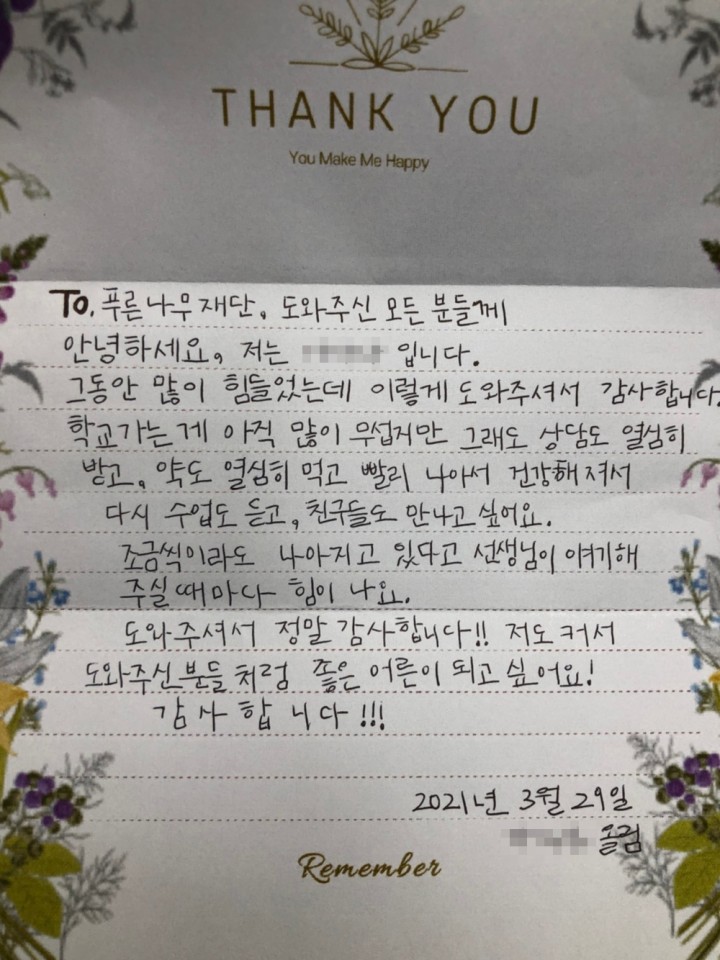 THANK YOU
You Make Me Happy
To. 푸른나무재단, 도와주신 모든 분들께
안녕하세요, 저는 입니다.
그동안 많이 힘들었는데 이렇게 도와주셔서 감사합니다.
학교가는게 아직 많이 무섭지만 그래도 상담도 열심히
받고, 약도 열심히 먹고 빨리 나아서 건강해져서
다시 수업도 듣고, 친구들도 만나고 싶어요.
조금씩이라도 나아지고 있다고 선생님이 얘기해
주실 때마다 힘이 나요.
도와주셔서 정말 감사합니다!! 저도 커서
도와주신분들 처럼 좋은 어른이 되고 싶어요!
감사합니다!!!
2021년 3월 29일
올림
Remember